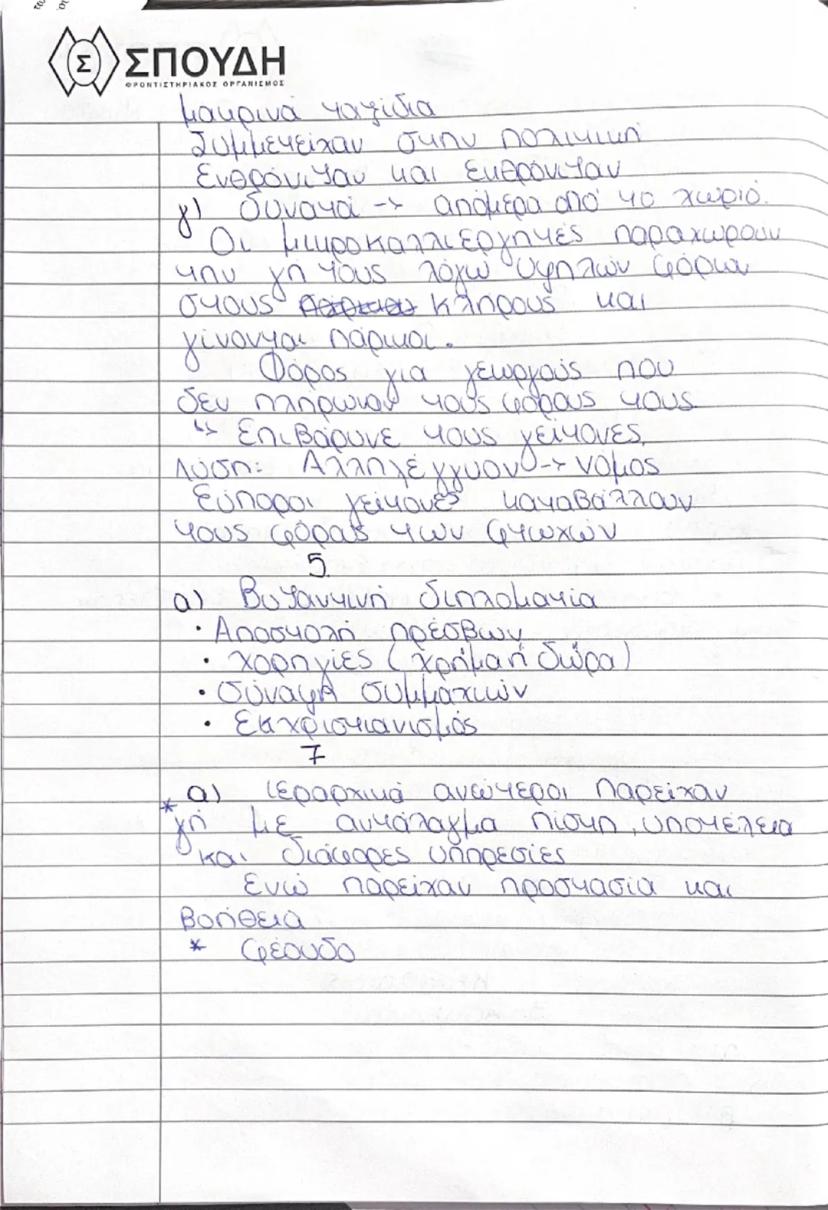 ΣΠΟΥΔΗ
ΦΡΟΝΤΙΣΤΗΡΙΑΚΟΣ ΟΡΓΑΝΙΣΜΟΣ
μακρινά ταξίδια
Συμμετείχαν στην πολιτική
Ενθρόνιζαν και εκθρόνιζαν
γ) δυνατά -> απόμερα από το χωριό.
Οι μικροκαλλιεργητές παραχωρούν
την γή τους λόγω υψηλών φόρων
στους κλήρους και
γίνονται πάρικοι.
Φόρος για γεωργούς που
δεν πλήρωναν τους φόρους τους
↳ Επιβάρυνε τους γείτονες
λύση: Αλληλέγγυον -> νόμος
Εύποροι γείτονες καταβάλλουν
τους φόρους των φτωχών
5
α) Βυζαντινή διπλοματία
• Αποστολή πρέσβων
• χορηγίες (χρήμα ή δώρα)
• σύναψη συμμαχιών
• Εκχριστιανισμός
7
α) ιεραρχικά ανώτεροι παρείχαν
* γή με αντάλαγμα πίστη, υποτέλεια
και διάφορες υπηρεσίες
Ενώ παρείχαν προστασία και
βοήθεια
* φέουδο